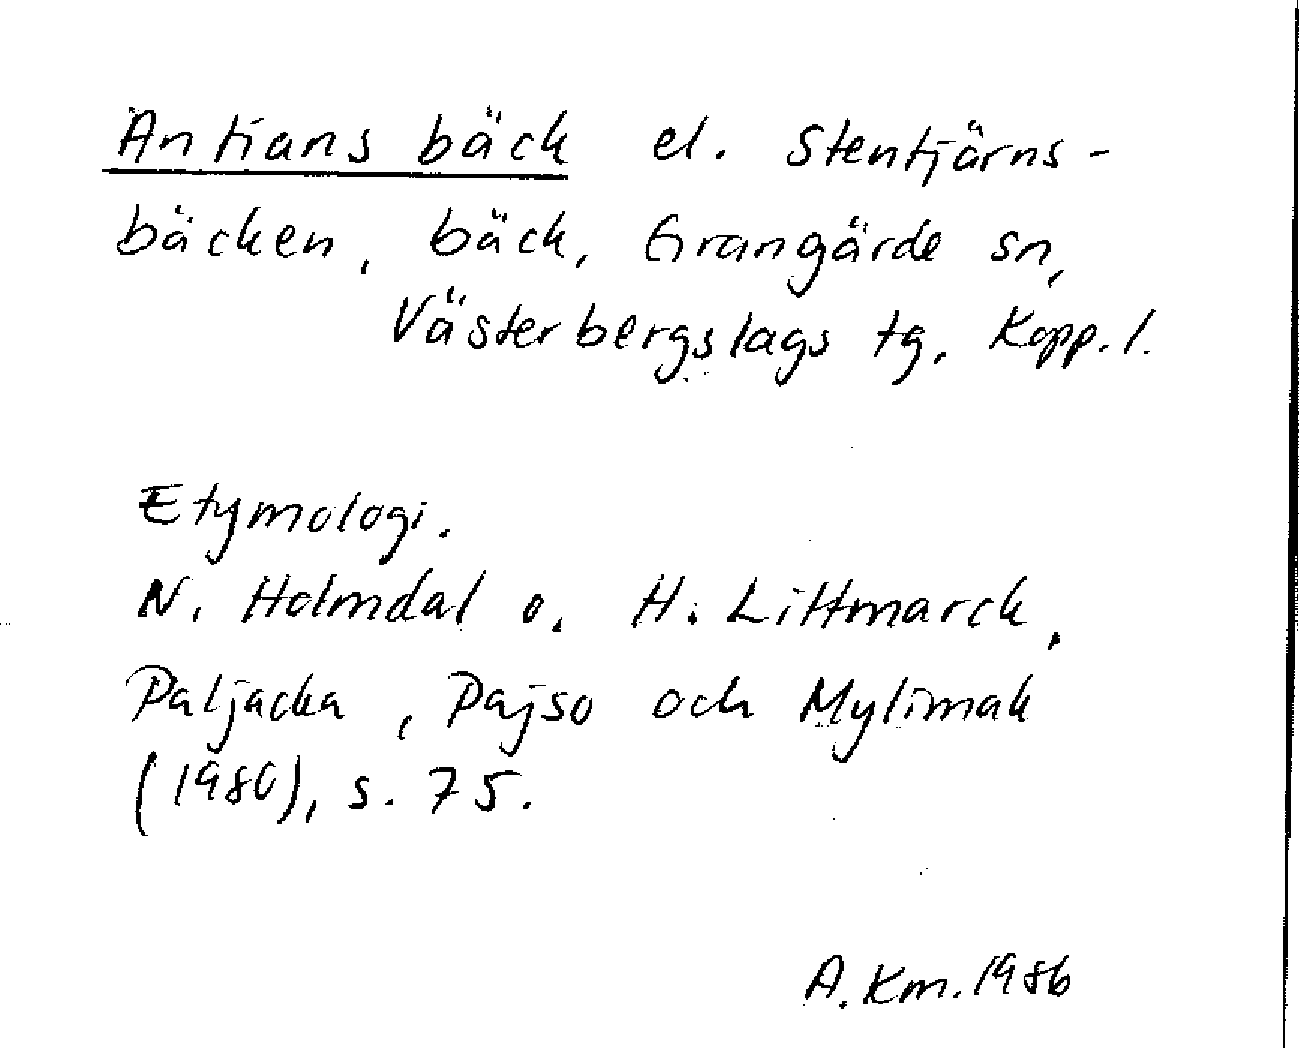 Antians bäck el. Stentjärns-
bäcken, bäck, Grangärde sn,
Västerbergslags tg. Kopp. l.
Etymologi.
N. Holmdal o. H. Littmarck,
Paljacka, Pajso och Mylimak
(1980), s. 75.
A. Km. 1986